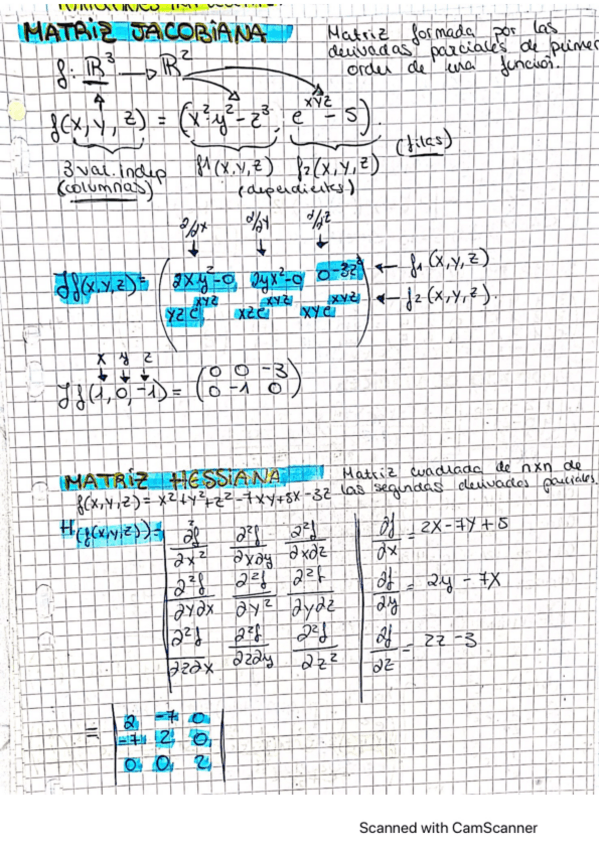 MATRIZ JACOBIANA
Matriz formada por las
derivadas parciales de primer
orden de una función.
f: ℝ³ → ℝ²
f(x, y, z) = (x²·y²-z³, e^xyz - 5).
3 var. indep f1(x,y,z) f2(x,y,z) (filas)
(columnas) (dependientes)
∂/∂x ∂/∂y ∂/∂z
Jf(x,y,z) = ( 2xy²-0 2yx²-0 0-3z² ← f1(x,y,z)
yze^xyz xze^xyz xye^xyz ) ← f2(x,y,z).
x y z
Jf(1,0,-1) = ( 0 0 -3
0 -1 0 )
MATRIZ HESSIANA
Matriz cuadrada de nxn de
las segundas derivadas parciales.
f(x,y,z) = x²+y²+z²-7xy+5x-3z
H(f(x,y,z)) = | ∂²f/∂x² ∂²f/∂x∂y ∂²f/∂x∂z | ∂f/∂x = 2x-7y+5
∂²f/∂y∂x ∂²f/∂y² ∂²f/∂y∂z | ∂f/∂y = 2y - 7x
∂²f/∂z∂x ∂²f/∂z∂y ∂²f/∂z² | ∂f/∂z = 2z - 3
= | 2 -7 0
-7 2 0
0 0 2 |
Scanned with CamScanner